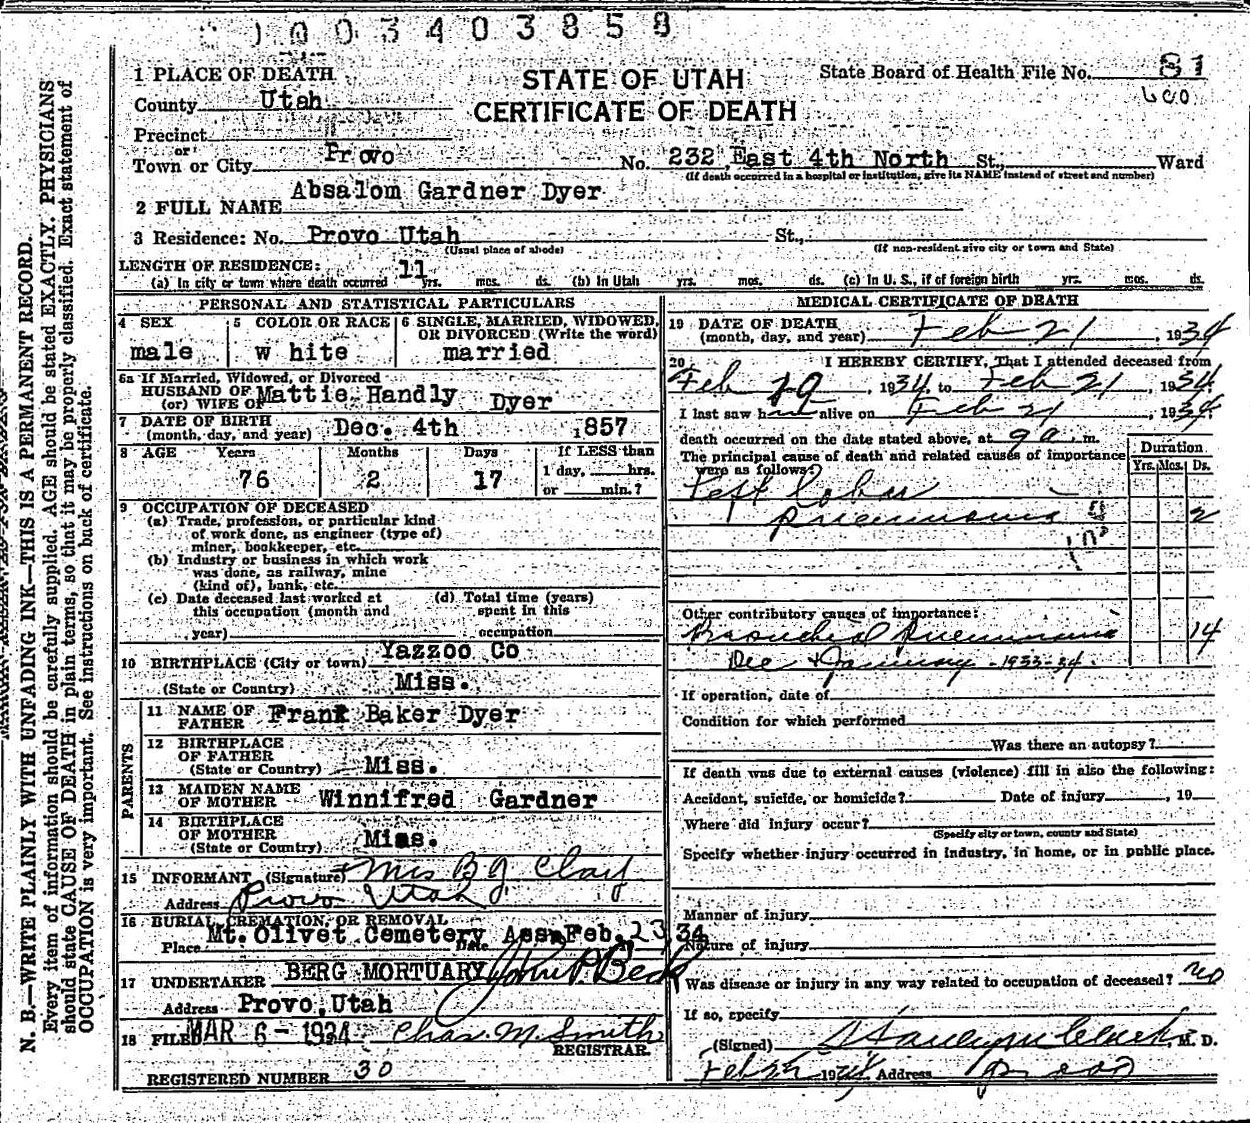 1003403858
1 PLACE OF DEATH
STATE OF UTAH
CERTIFICATE OF DEATH
State Board of Health File No. 81
600
County Utah
Precinct
or
Town or City Provo No. 232 East 4th North St., Ward
(If death occurred in a hospital or institution, give its NAME instead of street and number)
2 FULL NAME Absalom Gardner Dyer
3 Residence: No. Provo Utah St.,
(Usual place of abode) (If non-resident give city or town and State)
LENGTH OF RESIDENCE:
(a) In city or town where death occurred 11 yrs. mos. ds. (b) In Utah yrs. mos. ds. (c) In U. S., if of foreign birth yrs. mos. ds.
PERSONAL AND STATISTICAL PARTICULARS
4 SEX
male
5 COLOR OR RACE
W hite
6 SINGLE, MARRIED, WIDOWED, OR DIVORCED (Write the word)
married
6a If Married, Widowed, or Divorced
HUSBAND OF
(or) WIFE OF Mattie Handly Dyer
7 DATE OF BIRTH
(month, day, and year) Dec. 4th ,1857
8 AGE Years Months Days If LESS than
76 2 17 1 day, hrs.
or min.?
9 OCCUPATION OF DECEASED
(a) Trade, profession, or particular kind
of work done, as engineer (type of)
miner, bookkeeper, etc.
(b) Industry or business in which work
was done, as railway, mine
(kind of), bank, etc.
(c) Date deceased last worked at
this occupation (month and
year)
(d) Total time (years)
spent in this
occupation
10 BIRTHPLACE (City or town) Yazzoo Co
(State or Country) Miss.
PARENTS
11 NAME OF
FATHER Frank Baker Dyer
12 BIRTHPLACE
OF FATHER
(State or Country) Miss.
13 MAIDEN NAME
OF MOTHER Winnifred Gardner
14 BIRTHPLACE
OF MOTHER
(State or Country) Miss.
15 INFORMANT (Signature) Mrs B J Clay
Address Provo Utah
16 BURIAL, CREMATION, OR REMOVAL
Place Mt. Olivet Cemetery Assn Date Feb. 23 34
17 UNDERTAKER BERG MORTUARY John P. Beck
Address Provo, Utah
18 FILED MAR 6 - 1934 Chas. M. Smith
REGISTRAR.
REGISTERED NUMBER 30
MEDICAL CERTIFICATE OF DEATH
19 DATE OF DEATH
(month, day, and year) Feb 21, 1934
20 I HEREBY CERTIFY, That I attended deceased from
Feb 20, 1934 to Feb 21, 1934
I last saw him alive on Feb 21, 1934
death occurred on the date stated above, at 9 a. m.
The principal cause of death and related causes of importance
were as follows:
Duration
Yrs. Mos. Ds.
Left Lobar
pneumonia 2
Other contributory causes of importance:
Bronchial Pneumonia 14
Dec & January - 1933-34.
If operation, date of
Condition for which performed
Was there an autopsy?
If death was due to external causes (violence) fill in also the following:
Accident, suicide, or homicide? Date of injury , 19
Where did injury occur?
(Specify city or town, county and State)
Specify whether injury occurred in industry, in home, or in public place.
Manner of injury
Nature of injury
Was disease or injury in any way related to occupation of deceased? no
If so, specify
(Signed) , M. D.
1934 Address Provo
N. B.—WRITE PLAINLY WITH UNFADING INK—THIS IS A PERMANENT RECORD.
Every item of information should be carefully supplied. AGE should be stated EXACTLY. PHYSICIANS
should state CAUSE OF DEATH in plain terms, so that it may be properly classified. Exact statement of
OCCUPATION is very important. See instructions on back of certificate.